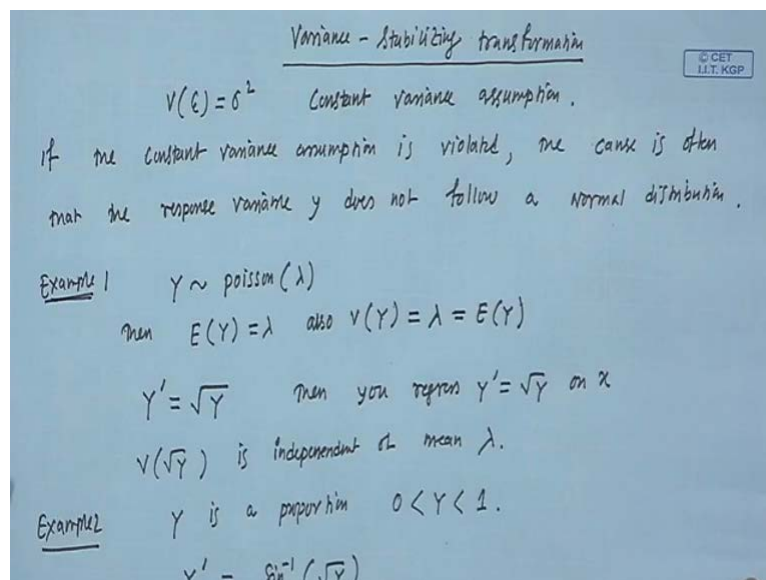 Variance - Stabilizing transformation
© CET
I.I.T. KGP
V(ε) = σ² Constant variance assumption.
If the constant variance assumption is violated, the cause is often
that the response variable y does not follow a normal distribution.
Example 1 Y ~ poisson(λ)
Then E(Y) = λ also V(Y) = λ = E(Y)
Y' = √Y Then you regress Y' = √Y on x
V(√Y) is independent of mean λ.
Example 2 Y is a proportion 0 < Y < 1.
Y' = Sin⁻¹(√Y)